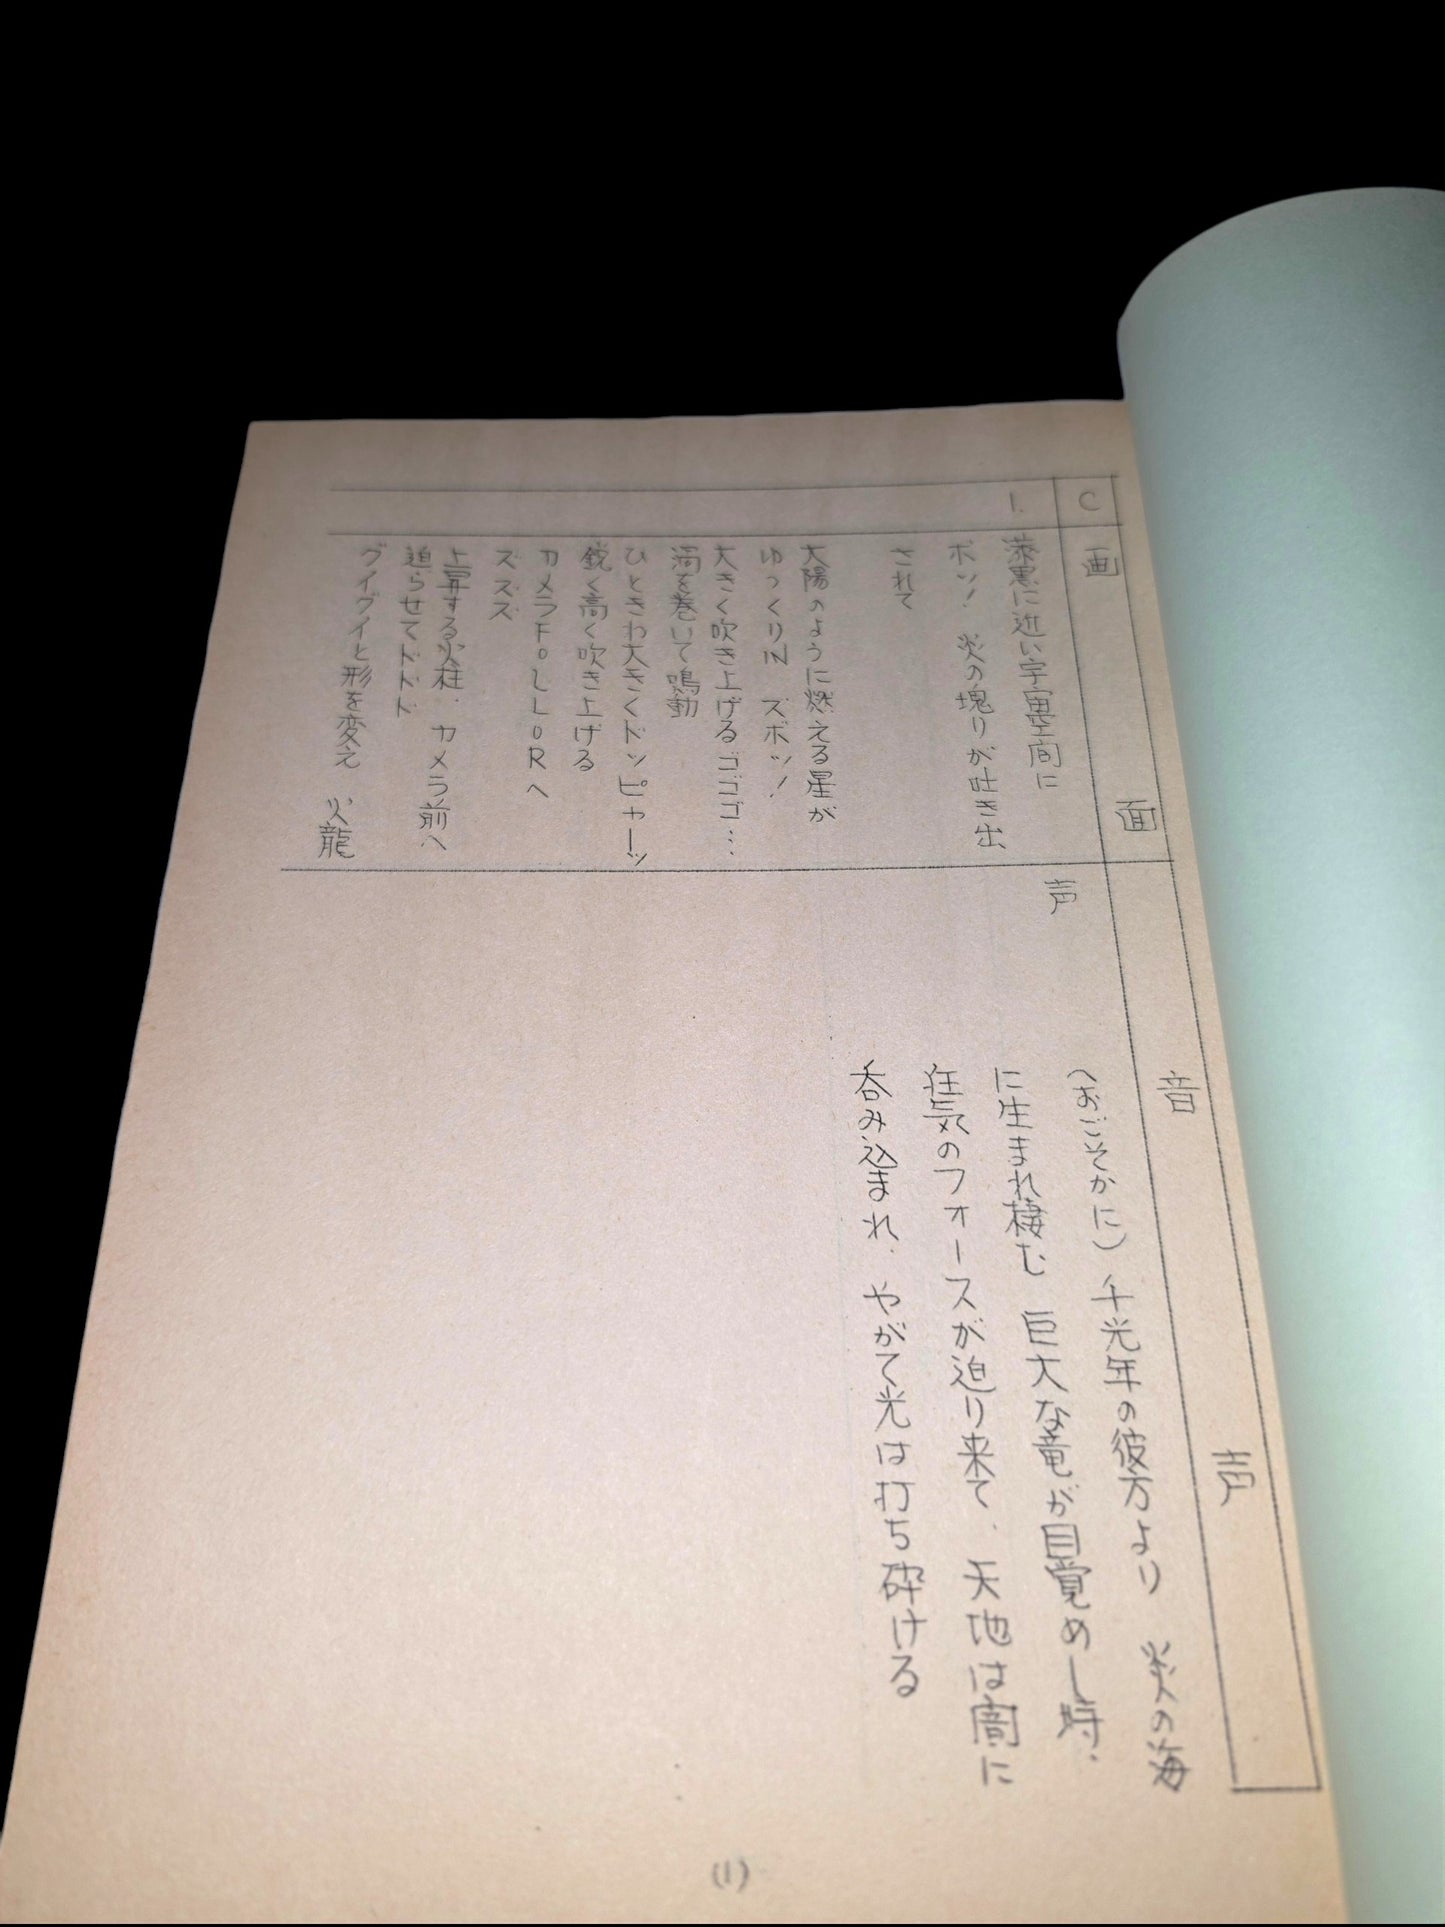 C 画面 音声
1.
漆黒に近い宇宙空间に
ボッ! 炎の塊りが吐き出
されて
太陽のように燃える星が
ゆっくりIN ズボッ!
大きく吹き上げるゴゴゴ…
渦を巻いて鳴動
ひときわ大きくドッピャーッ
鋭く高く吹き上げる
カメラFOLLORへ
ズズズ
上昇する火柱、カメラ前へ
迫らせてドドド
グイグイと形を変え 火龍
声
(おごそかに)千光年の彼方より 炎の海
に生まれ棲む 巨大な竜が目覚めし時、
狂気のフォースが迫り来て、天地は闇に
呑み込まれ、やがて光は打ち砕ける
(1)